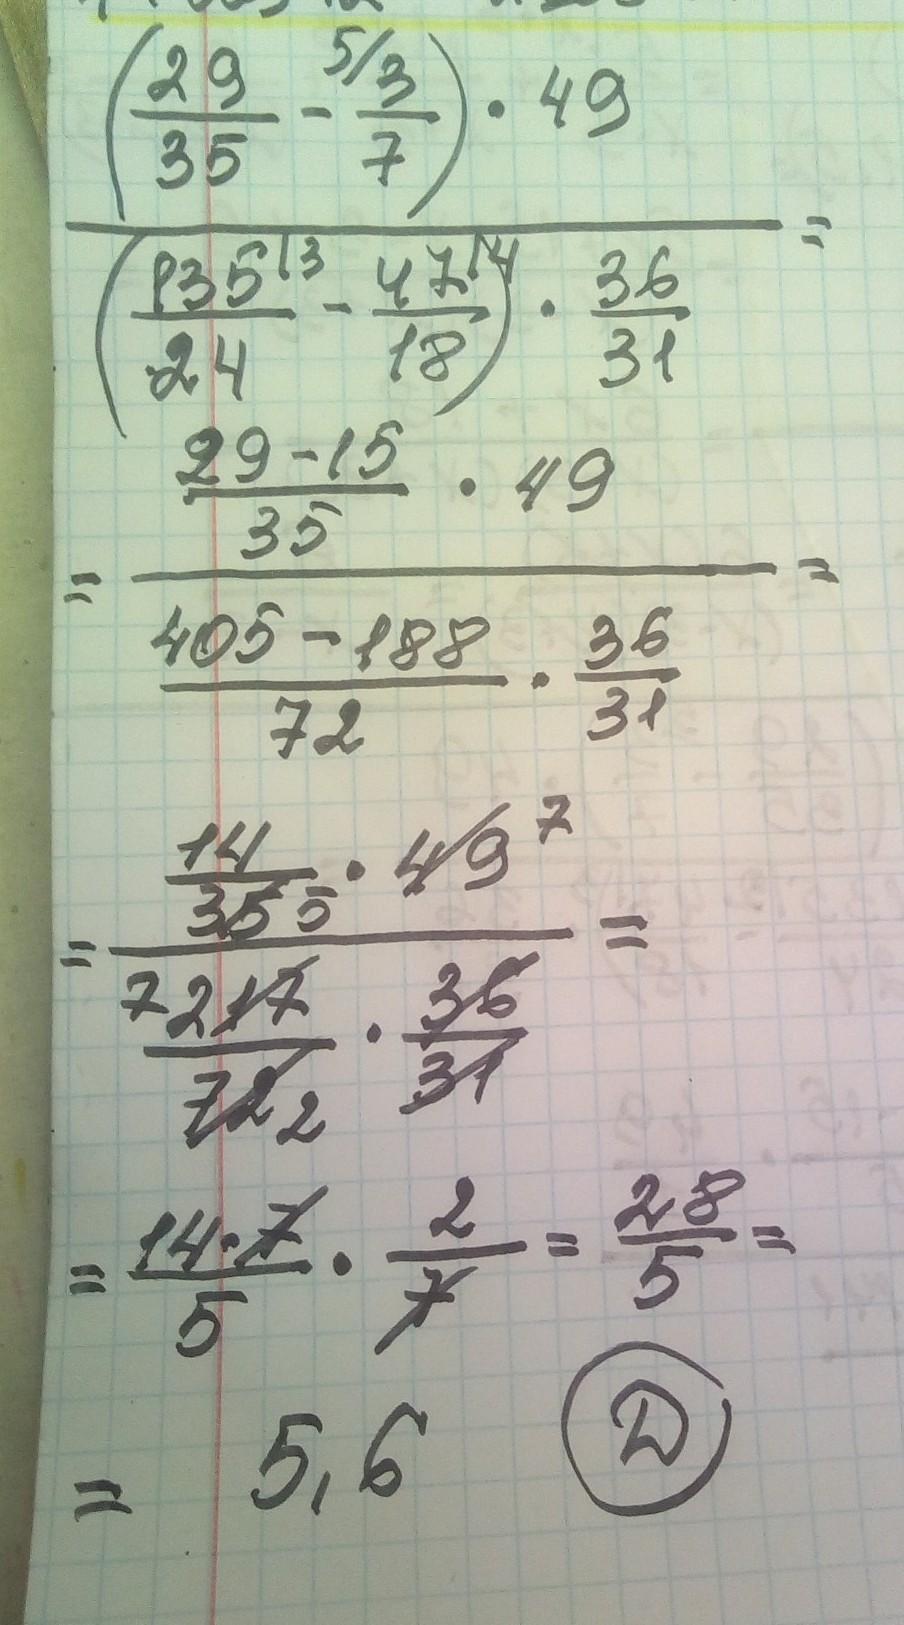 (29/35 - 5/ 3/7) · 49
=
(135/24 |3 - 47/18 |4) · 36/31
29 - 15 / 35 · 49
= =
405 - 188 / 72 · 36/31
14/35 5 · 49 7
= =
7 217/72 2 · 36/31
= 14 · 7 / 5 · 2/7 = 28/5 =
= 5,6 D